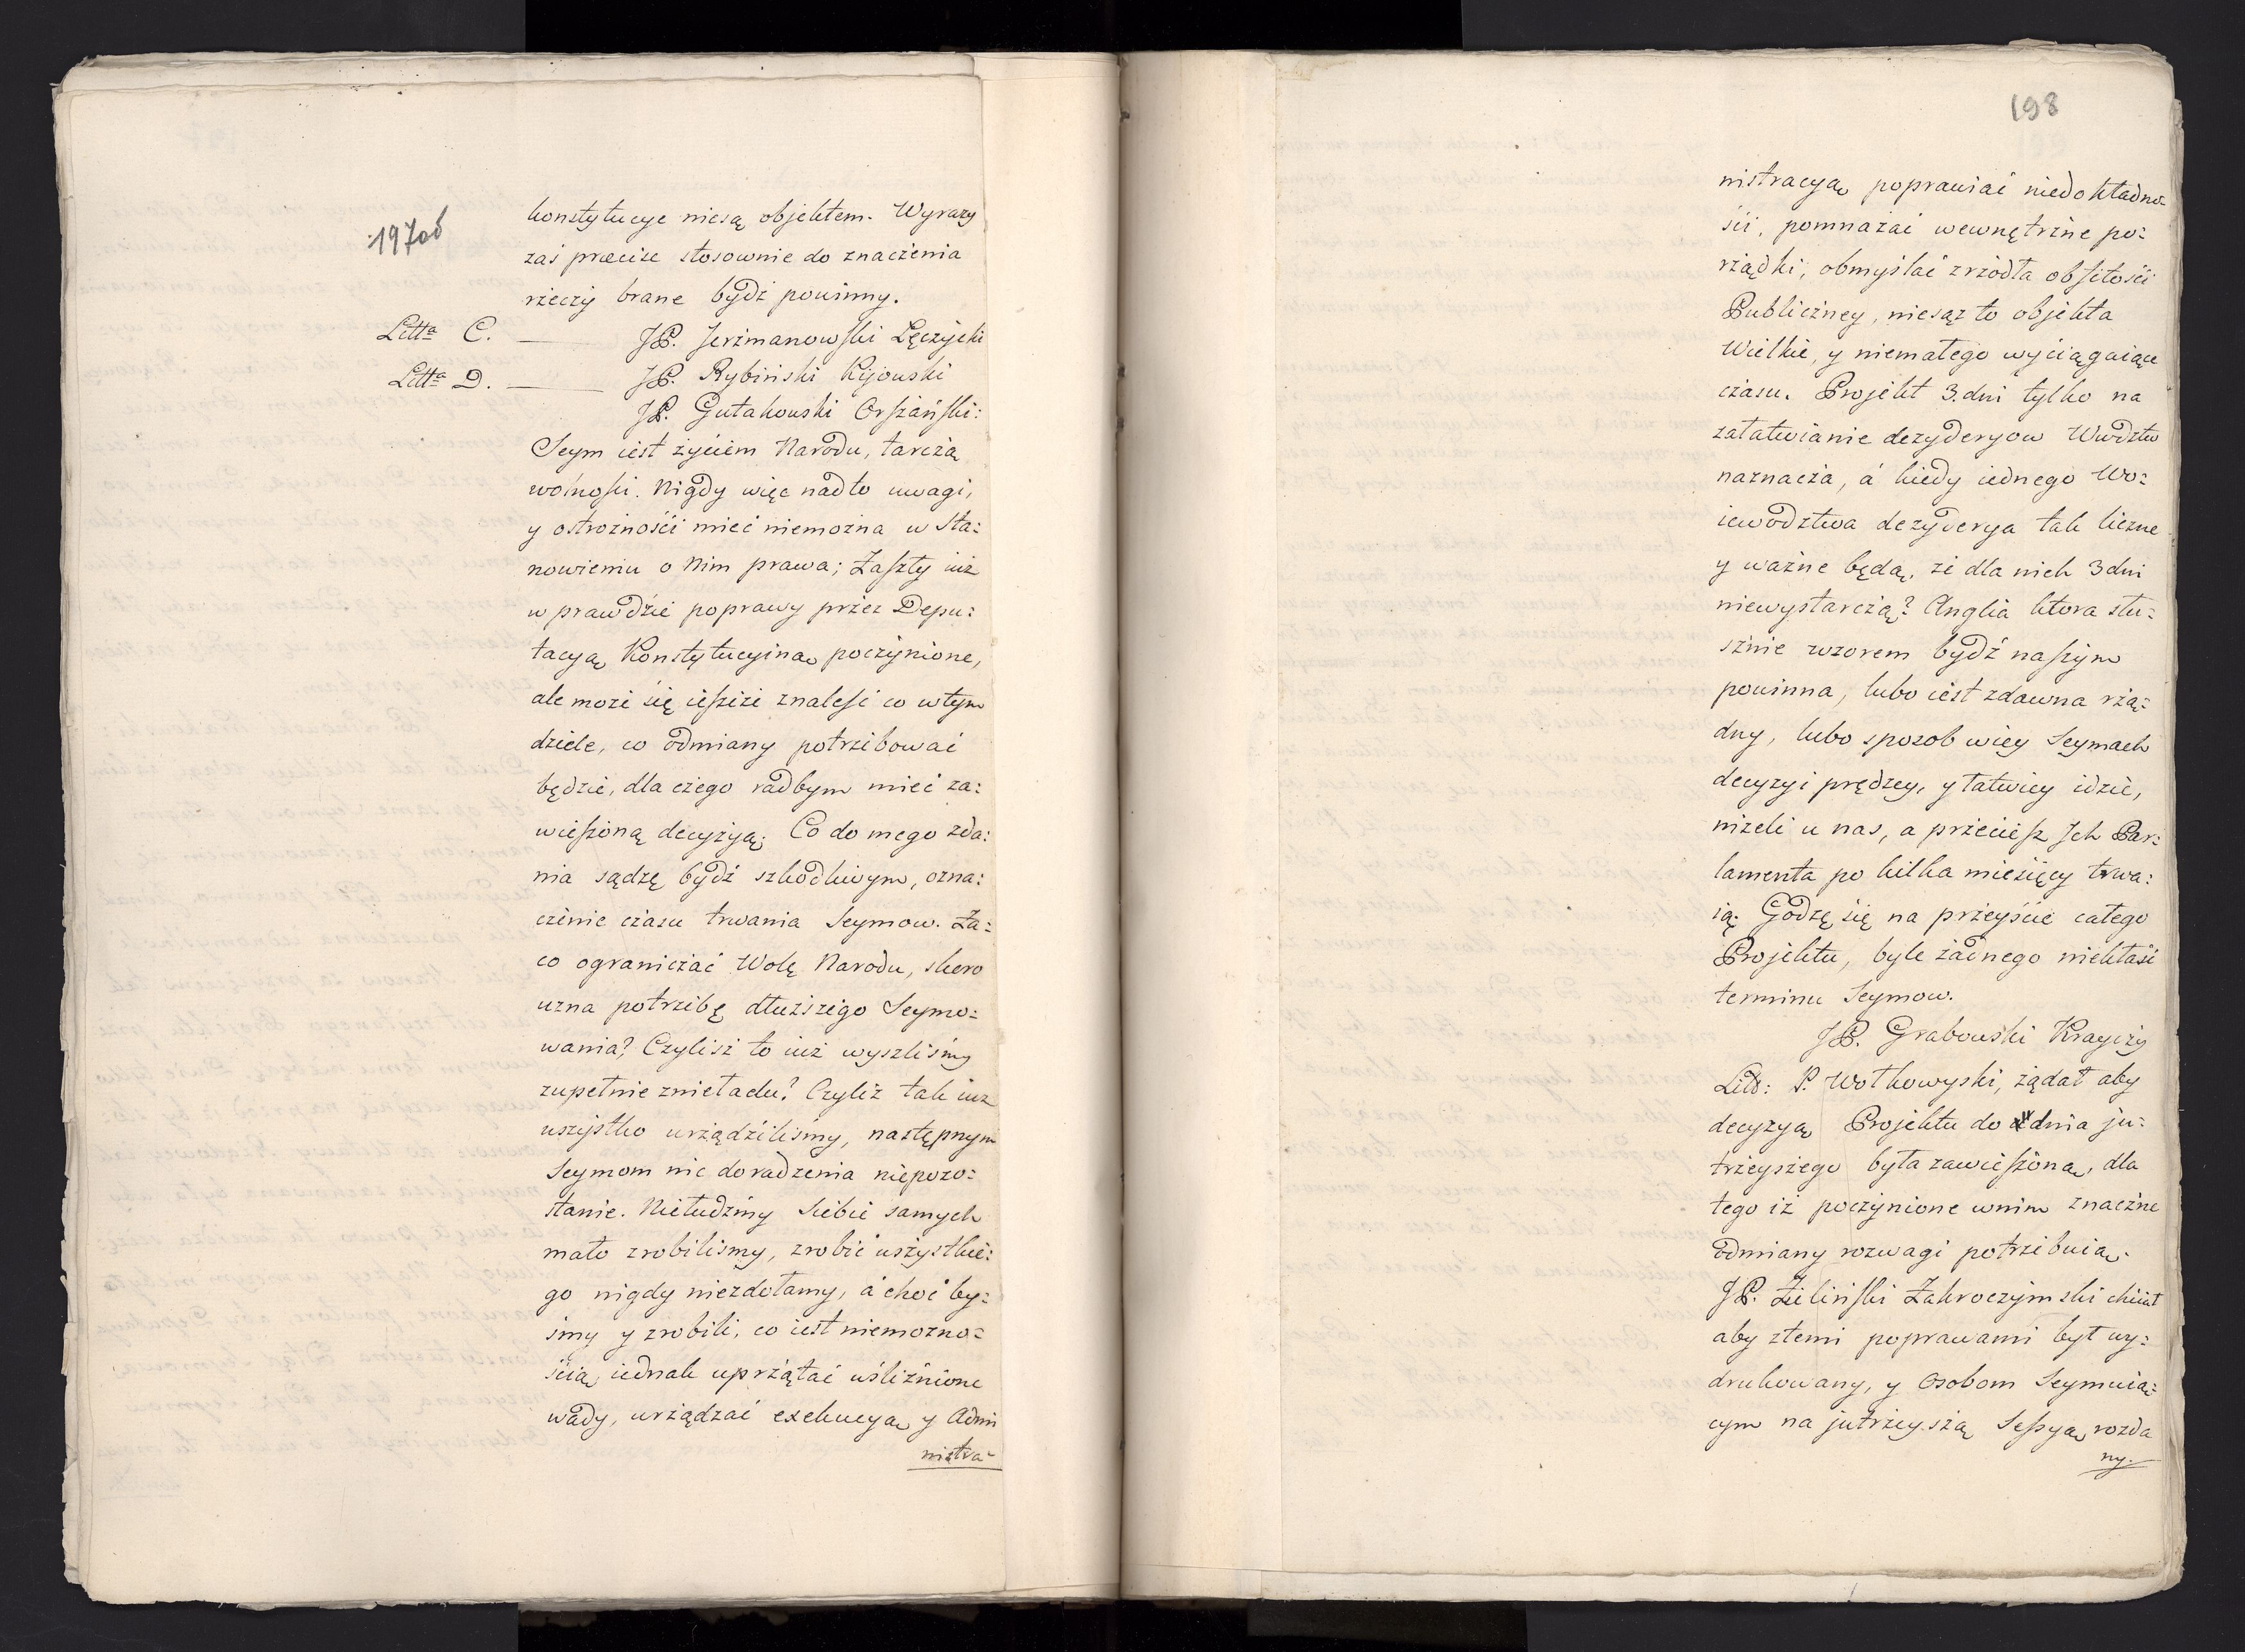 197ob
konstytucye niesą objektem. Wyrazy
zaś præcise stosownie do znaczenia
rzeczy brane bydź powinny.
Litt̲a C. — JP. Jerzmanowski Łęczycki
Litt̲a D. — JP. Rybiński Kijowski
JP. Gutakowski Orszański:
Seym iest życiem Narodu, tarczą
wolności. Nigdy więc nadto uwagi,
y ostrożności mieć niemożna w Sta:
nowieniu o Nim prawa; Zaszły iuż
w prawdzie poprawy przez Depu:
tacyą Konstytucyiną poczynione,
ale może się ieszcze znaleść co wtym
dziele, co odmiany potrzebować
będzie, dla czego radbym mieć za:
wieszoną decyzyą. Co do mego zda:
nia sądzę bydź szkodliwym, ozna:
czenie czasu trwania Seymow. Za:
co ograniczać Wolę Narodu, skoro
uzna potrzebę dłuższego Seymo:
wania? Czylisz to iuż wyszliśmy
zupełnie znieładu? Czyliż tak iuż
wszystko urządziliśmy, następnym
Seymom nic doradzenia niepozo:
stanie. Niełudźmy Siebie samych
mało zrobiliśmy, zrobić wszystkie:
go nigdy niezdołamy, á choć by:
śmy y zrobili, co iest niemożno:
ścią, iednak uprzątać uśliźnione
wady, urządzać exekucyą y Admi
nistra-
198
nistracyą poprawiać niedokładno-
ści, pomnażać wewnętrzne po:
rządki, obmyślać zrzodła obfitości
Publiczney, niesąż to objekta
Wielkie, y niemałego wyciągaiące
czasu. Projekt 3. dni tylko na
załatwianie dezyderyow Wwodztw
naznacza, á kiedy iednego Wo:
iewodztwa dezyderya tak liczne
y ważne będą, że dla nich 3 dni
niewystarczą? Anglia ktora słu:
sznie wzorem bydź naszym
powinna, lubo iest zdawna rzą:
dny, lubo sposob wiey Seymach
decyzyi prędzey, y łatwiey idzie,
niżeli u nas, a przeciesz Jch Par:
lamenta po kilka miesięcy trwa:
ią. Godzę się na przeyście całego
Projektu, byle żadnego niekłaść
terminu Seymow.
JP. Grabowski Krayczy
Litt: P. Wołkowyski, żądał aby
decyzyą Projektu do dnia ju:
trzeyszego była zawieszona, dla
tego iż poczynione wnim znaczne
odmiany rozwagi potrzebuią.
JP. Zieliński Zakroczymski chciał
aby ztemi poprawami był wy:
drukowany, y Osobom Seymuią:
cym na jutrzeyszą Sessyą rozda
ny.